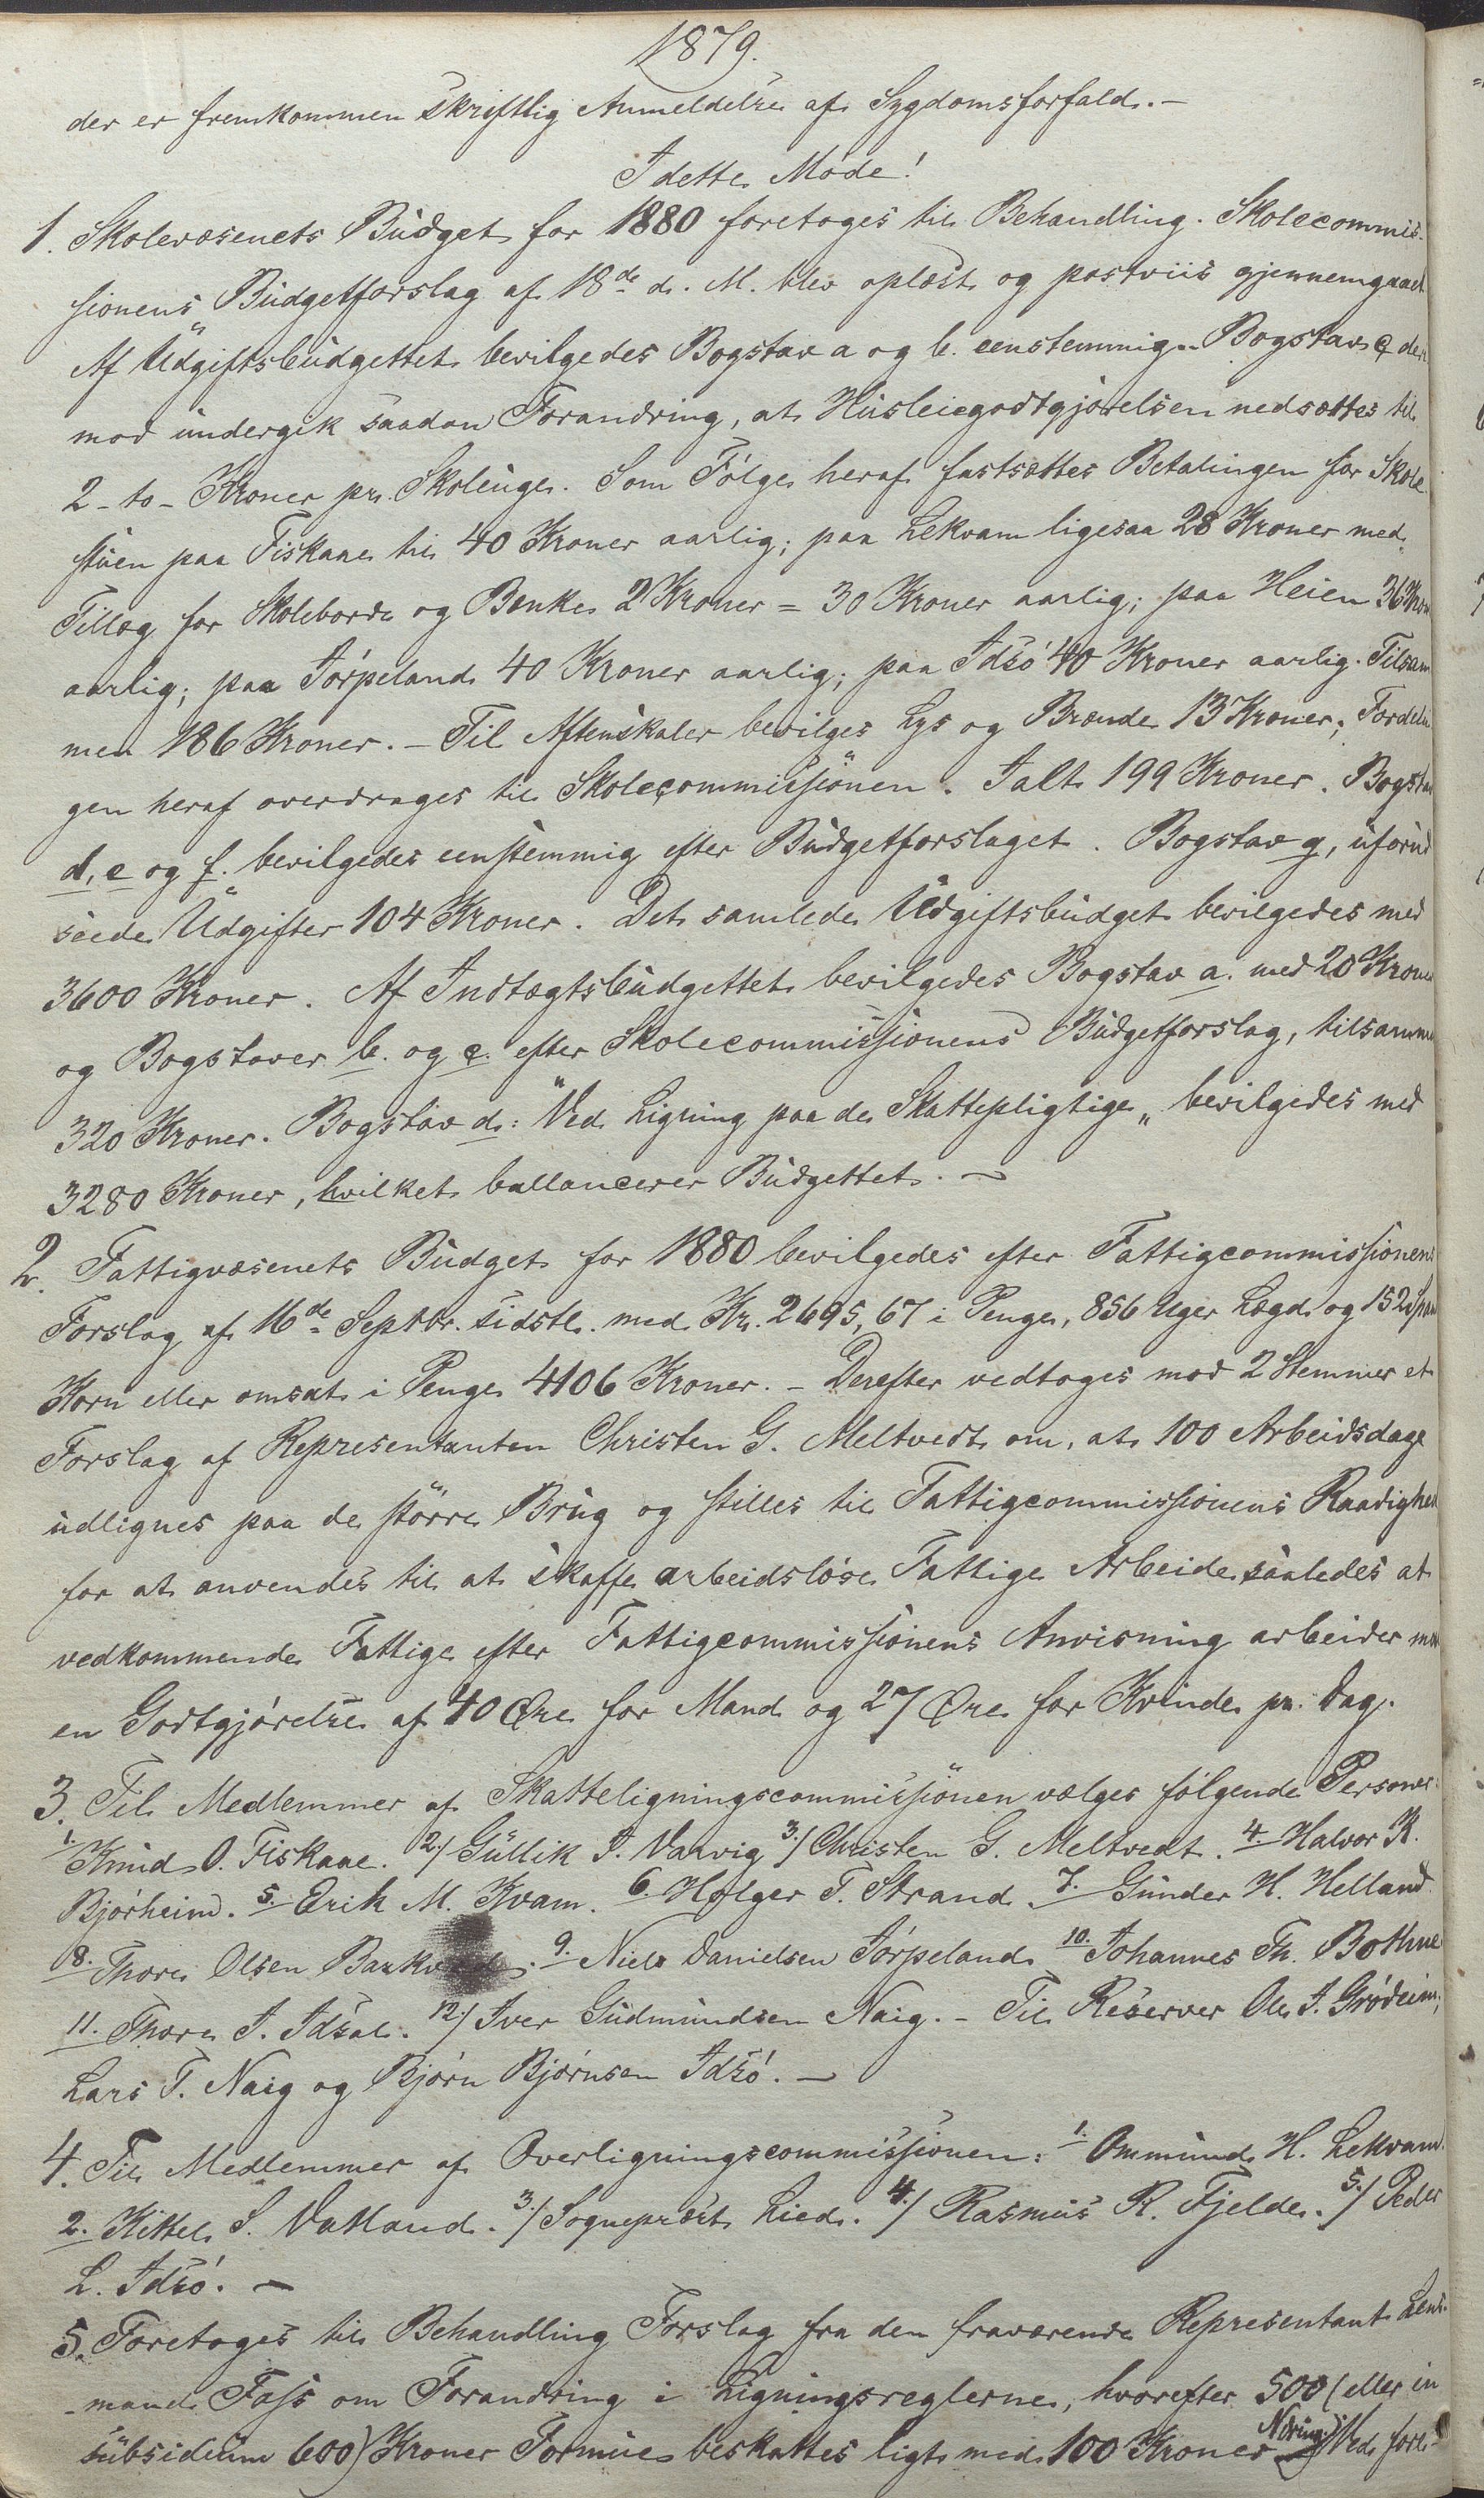 1879.
der er fremkommen skriftlig Anmeldelse af Sygdomsforfald. -
I dette Møde!
1. Skolevæsenets Budget for 1880 foretoges til Behandling. Skolecommis-
sionens Budgetforslag af 18de d. M. blev oplæst og postviis gjennemgaaet
Af Udgiftsbudgettet bevilgedes Bogstav a og b. eenstemmig. Bogstav c der
mod undergik saadan Forandring, at Husleiegodtgjørelsen nedsættes til
2 - to - Kroner pr. Skoleuge. Som Følge heraf fastsættes Betalingen for Skole
stuen paa Fiskaae til 40 Kroner aarlig; paa Lekvam ligesaa 28 Kroner med
Tillæg for Skoleborde og Bænke 2 Kroner = 30 Kroner aarlig; paa Heien 36 Kron
aarlig; paa Jørpeland 40 Kroner aarlig; paa Idsø 40 Kroner aarlig. Tilsam
men 186 Kroner. - Til Aftenskoler bevilges Lys og Brænde 13 Kroner; Fordelin
gen heraf overdrages til Skolecommissionen. Ialt 199 Kroner. Bogstav
d, e og f. bevilgedes eenstemmig efter Budgetforslaget. Bogstav g, uforud
seede Udgifter 104 Kroner. Det samlede Udgiftsbudget bevilgedes med
3600 Kroner. Af Indtægtsbudgettet bevilgedes Bogstav a. med 20 Kroner
og Bogstaver b. og c. efter Skolecommissionens Budgetforslag, tilsammen
320 Kroner. Bogstav d: "Ved Ligning paa de Skattepligtige" bevilgedes med
3280 Kroner, hvilket ballancerer Budgettet. -
2. Fattigvæsenets Budget for 1880 bevilgedes efter Fattigcommissionens
Forslag af 16de Septbr. sidstl. med Kr. 2695,67 i Penge, 856 Uger Lægd og 152 Span
Korn eller omsat i Penge 4106 Kroner. - Derefter vedtoges mod 2 Stemmer et
Forslag af Representanten Christen G. Meltvedt om, at 100 Arbeidsdage
udlignes paa de større Brug og stilles til Fattigcommissionens Raadighed
for at anvendes til at skaffe arbeidsløse Fattige Arbeide saaledes at
vedkommende Fattige efter Fattigcommissionens Anvisning arbeider mod
en Godtgjørelse af 40 Øre for Mand og 27 Øre for Kvinde pr. Dag.
3. Til Medlemmer af Skatteligningscommissionen vælges følgende Personer:
1. Knud O. Fiskaae. 2/ Gullik I. Varvig 3/ Christen G. Meltvedt. 4. Halvor K.
Bjørheim. 5. Erik M. Kvam. 6. Holger T. Strand. 7. Gunder H. Helland
8. Thore Olsen Barkved. 9. Niels Danielsen Jørpeland 10. Johannes Th. Bothne
11. Thore J. Idsal. 12/ Iver Gudmundsen Naig. - Til Reserver Ole J. Grødeim;
Lars T. Naig og Bjørn Bjørnsen Idsø. -
4. Til Medlemmer af Overligningscommissionen: 1. Ommund H. Lekvam.
2. Kittel S. Vatland. 3/ Sogneprest Lied. 4/ Rasmus R. Fjelde. 5/ Peder
L. Idsø. -
5. Foretoges til Behandling Forslag fra den fraværende Representant Lens-
mand Fass om Forandring i Ligningsreglerne, hvorefter 500 (eller in
subsidium 600) Kroner Formue beskattes ligt med 100 Kroner Næring. Ved fore-